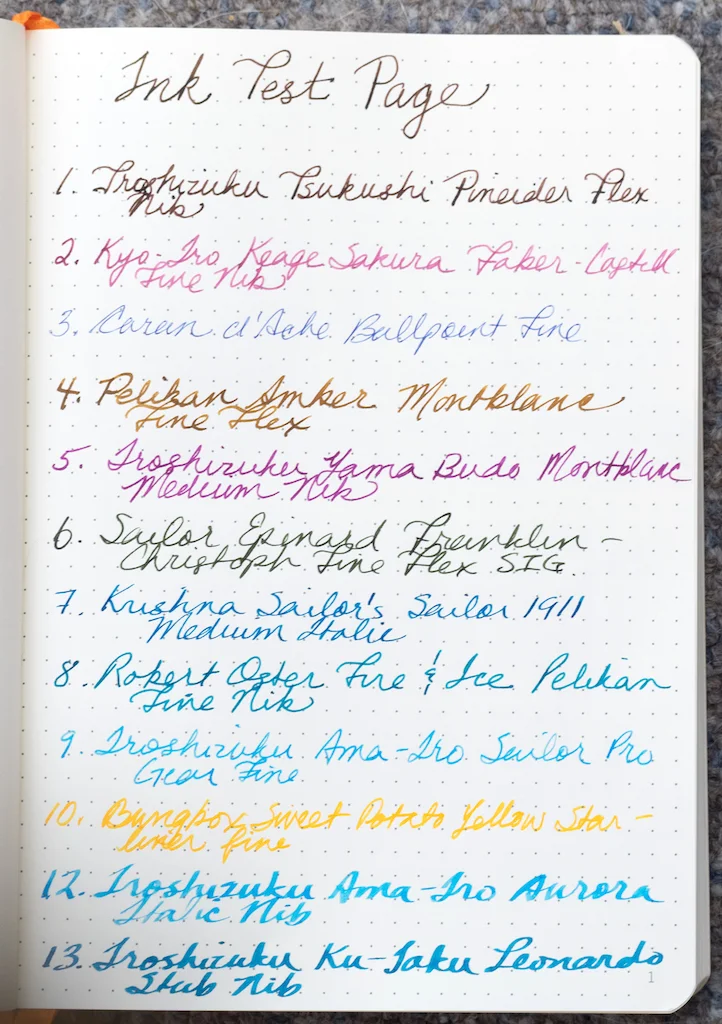 Ink Test Page
1. Iroshizuku Tsukushi Pineider Flex
Nib
2. Kyo-Iro Keage Sakura Faber-Castell
Fine Nib
3. Caran d'Ache Ballpoint Fine
4. Pelikan Amber Montblanc
Fine Flex
5. Iroshizuku Yama Budo Montblanc
Medium Nib
6. Sailor Epinard Franklin-
Christoph Fine Flex SIG.
7. Krishna Sailor's Sailor 1911
Medium Italic
8. Robert Oster Fire & Ice Pelikan
Fine Nib
9. Iroshizuku Ama-Iro Sailor Pro
Gear Fine
10. Bungbox Sweet Potato Yellow Star-
liner fine
12. Iroshizuku Ama-Iro Aurora
Italic Nib
13. Iroshizuku Ku-Jaku Leonardo
Stub Nib
1